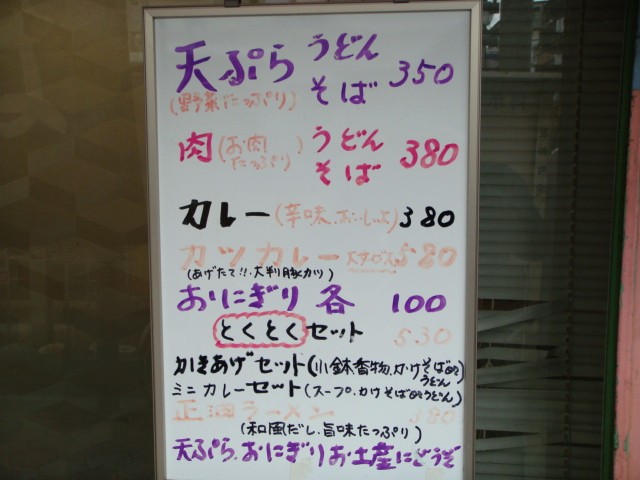 天ぷら うどん そば 350
(野菜たっぷり)
肉(お肉たっぷり) うどん そば 380
カレー(辛味、おいしいよ) 380
カツカレー 580
(あげたて!!、大判豚カツ)
おにぎり 各 100
とくとくセット 530
かきあげセット(小鉢香物、かけそばorうどん)
ミニカレーセット(スープ、かけそばorうどん)
正油ラーメン 380
(和風だし、旨味たっぷり)
天ぷら、おにぎりお土産にどうぞ